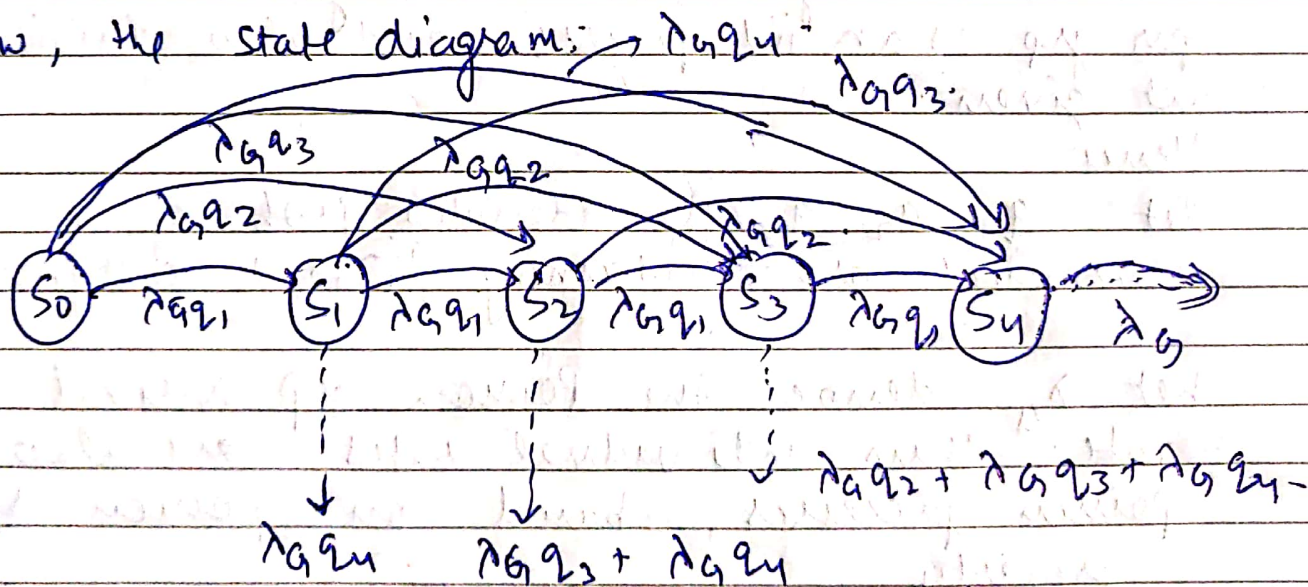 w, the state diagram: → λG q4
λG q3
λG q3 λG q2
λG q2 λG q2
S0 λG q1 S1 λG q1 S2 λG q1 S3 λG q1 S4 λG
λG q2 + λG q3 + λG q4
λG q4 λG q3 + λG q4